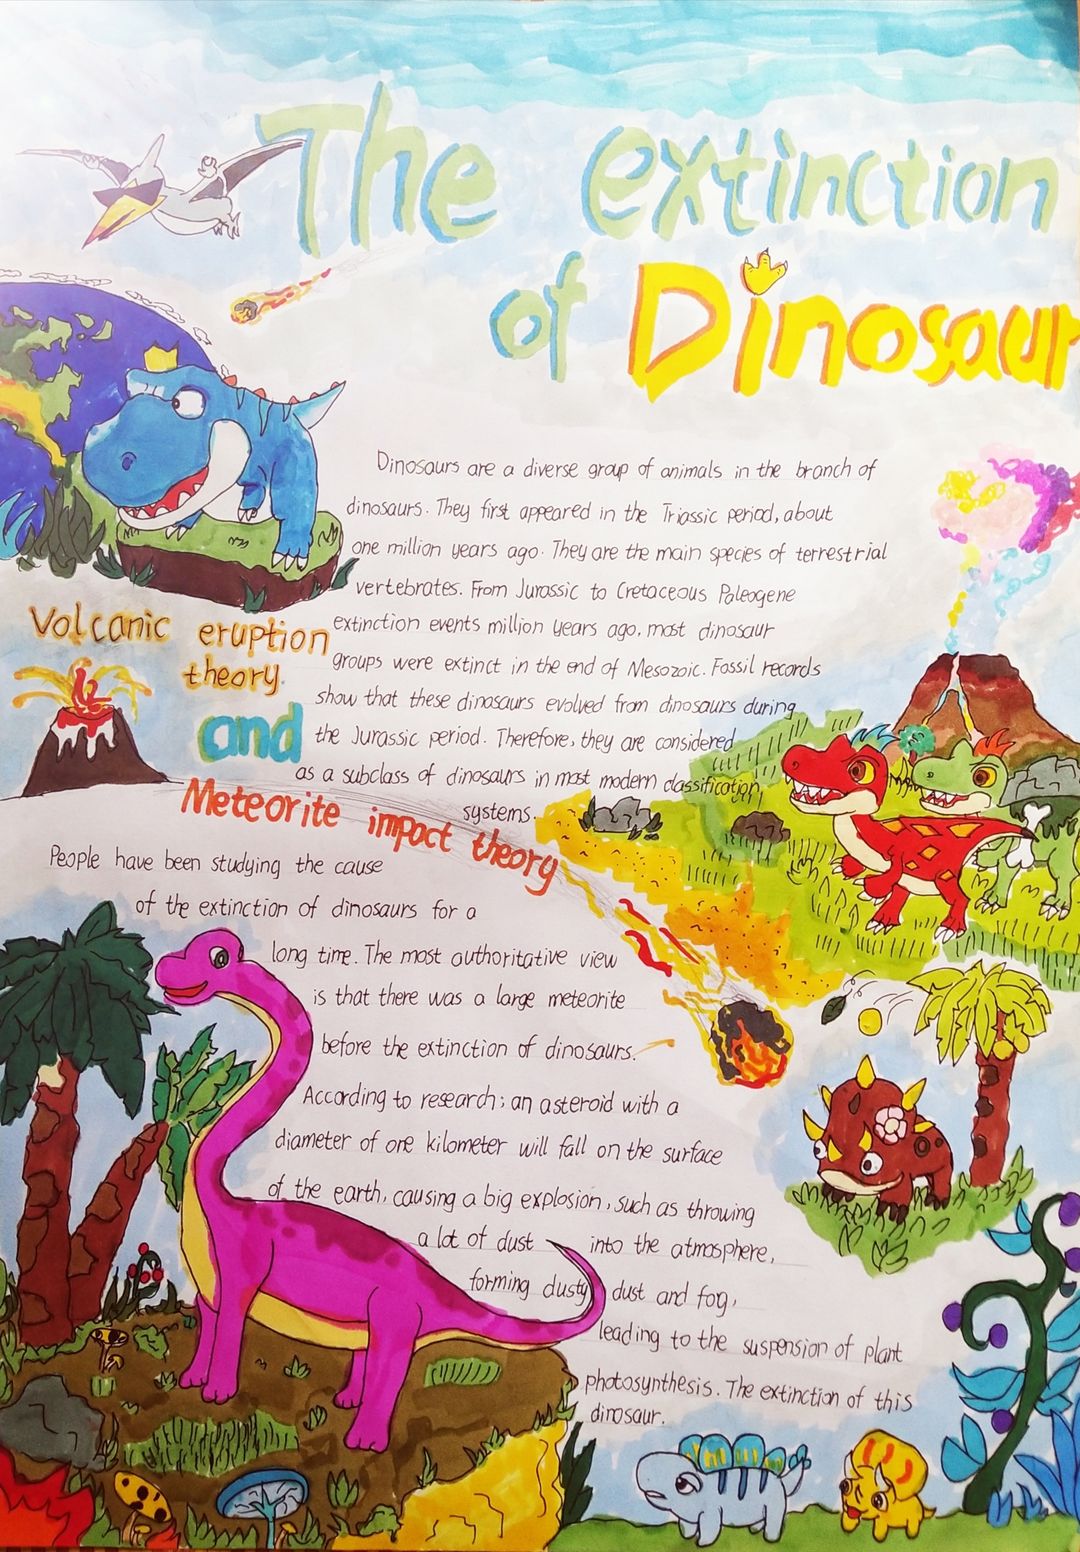 The extinction
of Dinosaur
Dinosaurs are a diverse group of animals in the branch of
dinosaurs. They first appeared in the Triassic period, about
one million years ago. They are the main species of terrestrial
vertebrates. From Jurassic to Cretaceous Paleogene
extinction events million years ago, most dinosaur
groups were extinct in the end of Mesozoic. Fossil records
show that these dinosaurs evolved from dinosaurs during
the Jurassic period. Therefore, they are considered
as a subclass of dinosaurs in most modern classification
systems.
Volcanic eruption
theory
and
Meteorite impact theory
People have been studying the cause
of the extinction of dinosaurs for a
long time. The most authoritative view
is that there was a large meteorite
before the extinction of dinosaurs.
According to research; an asteroid with a
diameter of one kilometer will fall on the surface
of the earth, causing a big explosion, such as throwing
a lot of dust into the atmosphere,
forming dusty dust and fog,
leading to the suspension of plant
photosynthesis. The extinction of this
dinosaur.